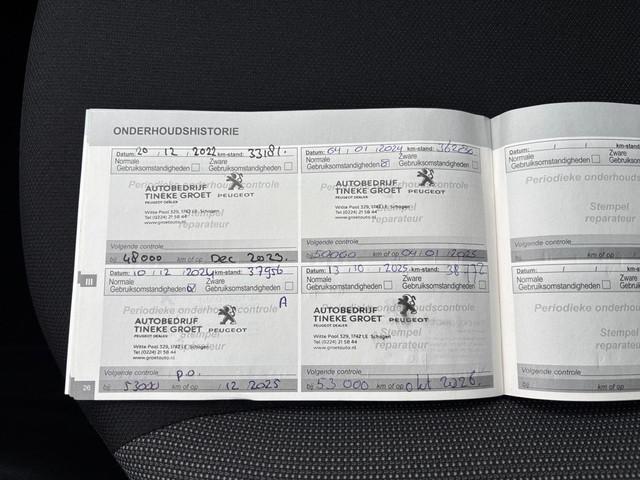 ONDERHOUDSHISTORIE
Datum: 20 / 12 / 2022 km-stand: 33181.
Normale Gebruiksomstandigheden
Zware Gebruiksomstandigheden
Periodieke onderhoudscontrole
AUTOBEDRIJF
TINEKE GROET
PEUGEOT DEALER
PEUGEOT
Witte Paal 329, 1742 LE Schagen
Tel (0224) 21 58 44
www.groetauto.nl
Stempel
reparateur
Volgende controle
bij 48000 km of op Dec 2023.
Datum: 04 / 01 / 2024 km-stand:
Normale Gebruiksomstandigheden
Zware Gebruiksomstandigheden
Periodieke onderhoudscontrole
AUTOBEDRIJF
TINEKE GROET
PEUGEOT DEALER
PEUGEOT
Witte Paal 329, 1742 LE Schagen
Tel (0224) 21 58 44
www.groetauto.nl
Stempel
reparateur
Volgende controle
bij 50000 km of op 04/01/2025
Datum: / /
km-stand:
Normale Gebruiksomstandigheden
Periodieke onderhoudscontrole
Stempel
reparateur
Volgende controle
bij km of op
III
Datum: 10 / 12 / 2024 km-stand: 37956
Normale Gebruiksomstandigheden
Zware Gebruiksomstandigheden
A
Periodieke onderhoudscontrole
AUTOBEDRIJF
TINEKE GROET
PEUGEOT DEALER
PEUGEOT
Witte Paal 329, 1742 LE Schagen
Tel (0224) 21 58 44
www.groetauto.nl
Stempel
reparateur
Volgende controle p.o.
bij 53000 km of op / 12 2025
Datum: 13 / 10 / 2025 km-stand: 38772
Normale Gebruiksomstandigheden
Zware Gebruiksomstandigheden
Periodieke onderhoudscontrole
AUTOBEDRIJF
TINEKE GROET
PEUGEOT DEALER
PEUGEOT
Witte Paal 329, 1742 LE Schagen
Tel (0224) 21 58 44
www.groetauto.nl
Stempel
reparateur
Volgende controle
bij 53 000 km of op okt 2026.
Datum: / /
km-stand:
Normale Gebruiksomstandigheden
Periodieke onderhoudscontrole
Stempel
reparateur
Volgende controle
bij km of op
26